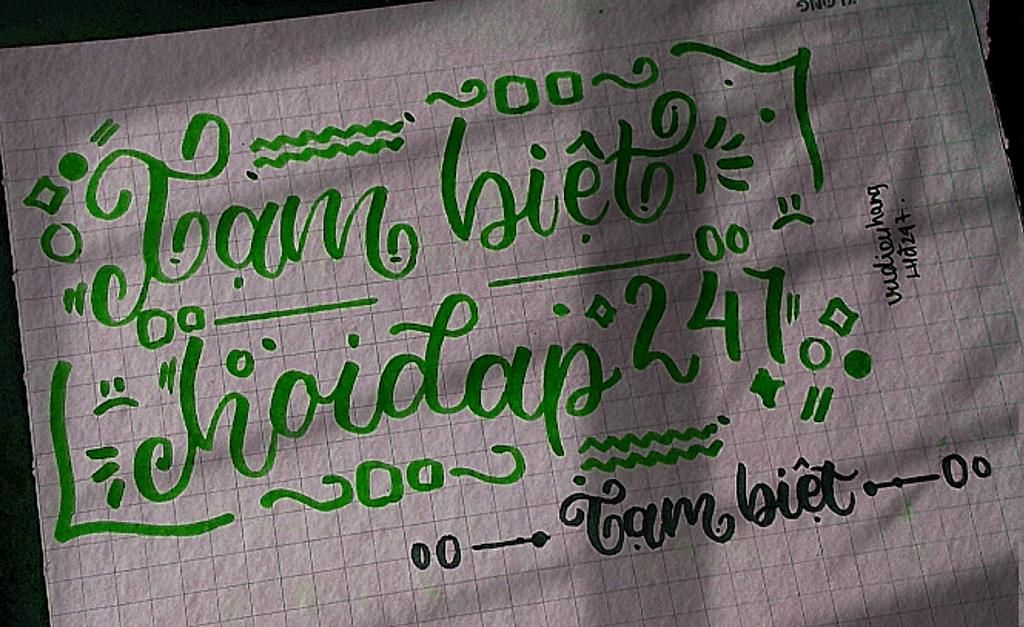 Tạm biệt
hoidap247
Tạm biệt
vudieuhang